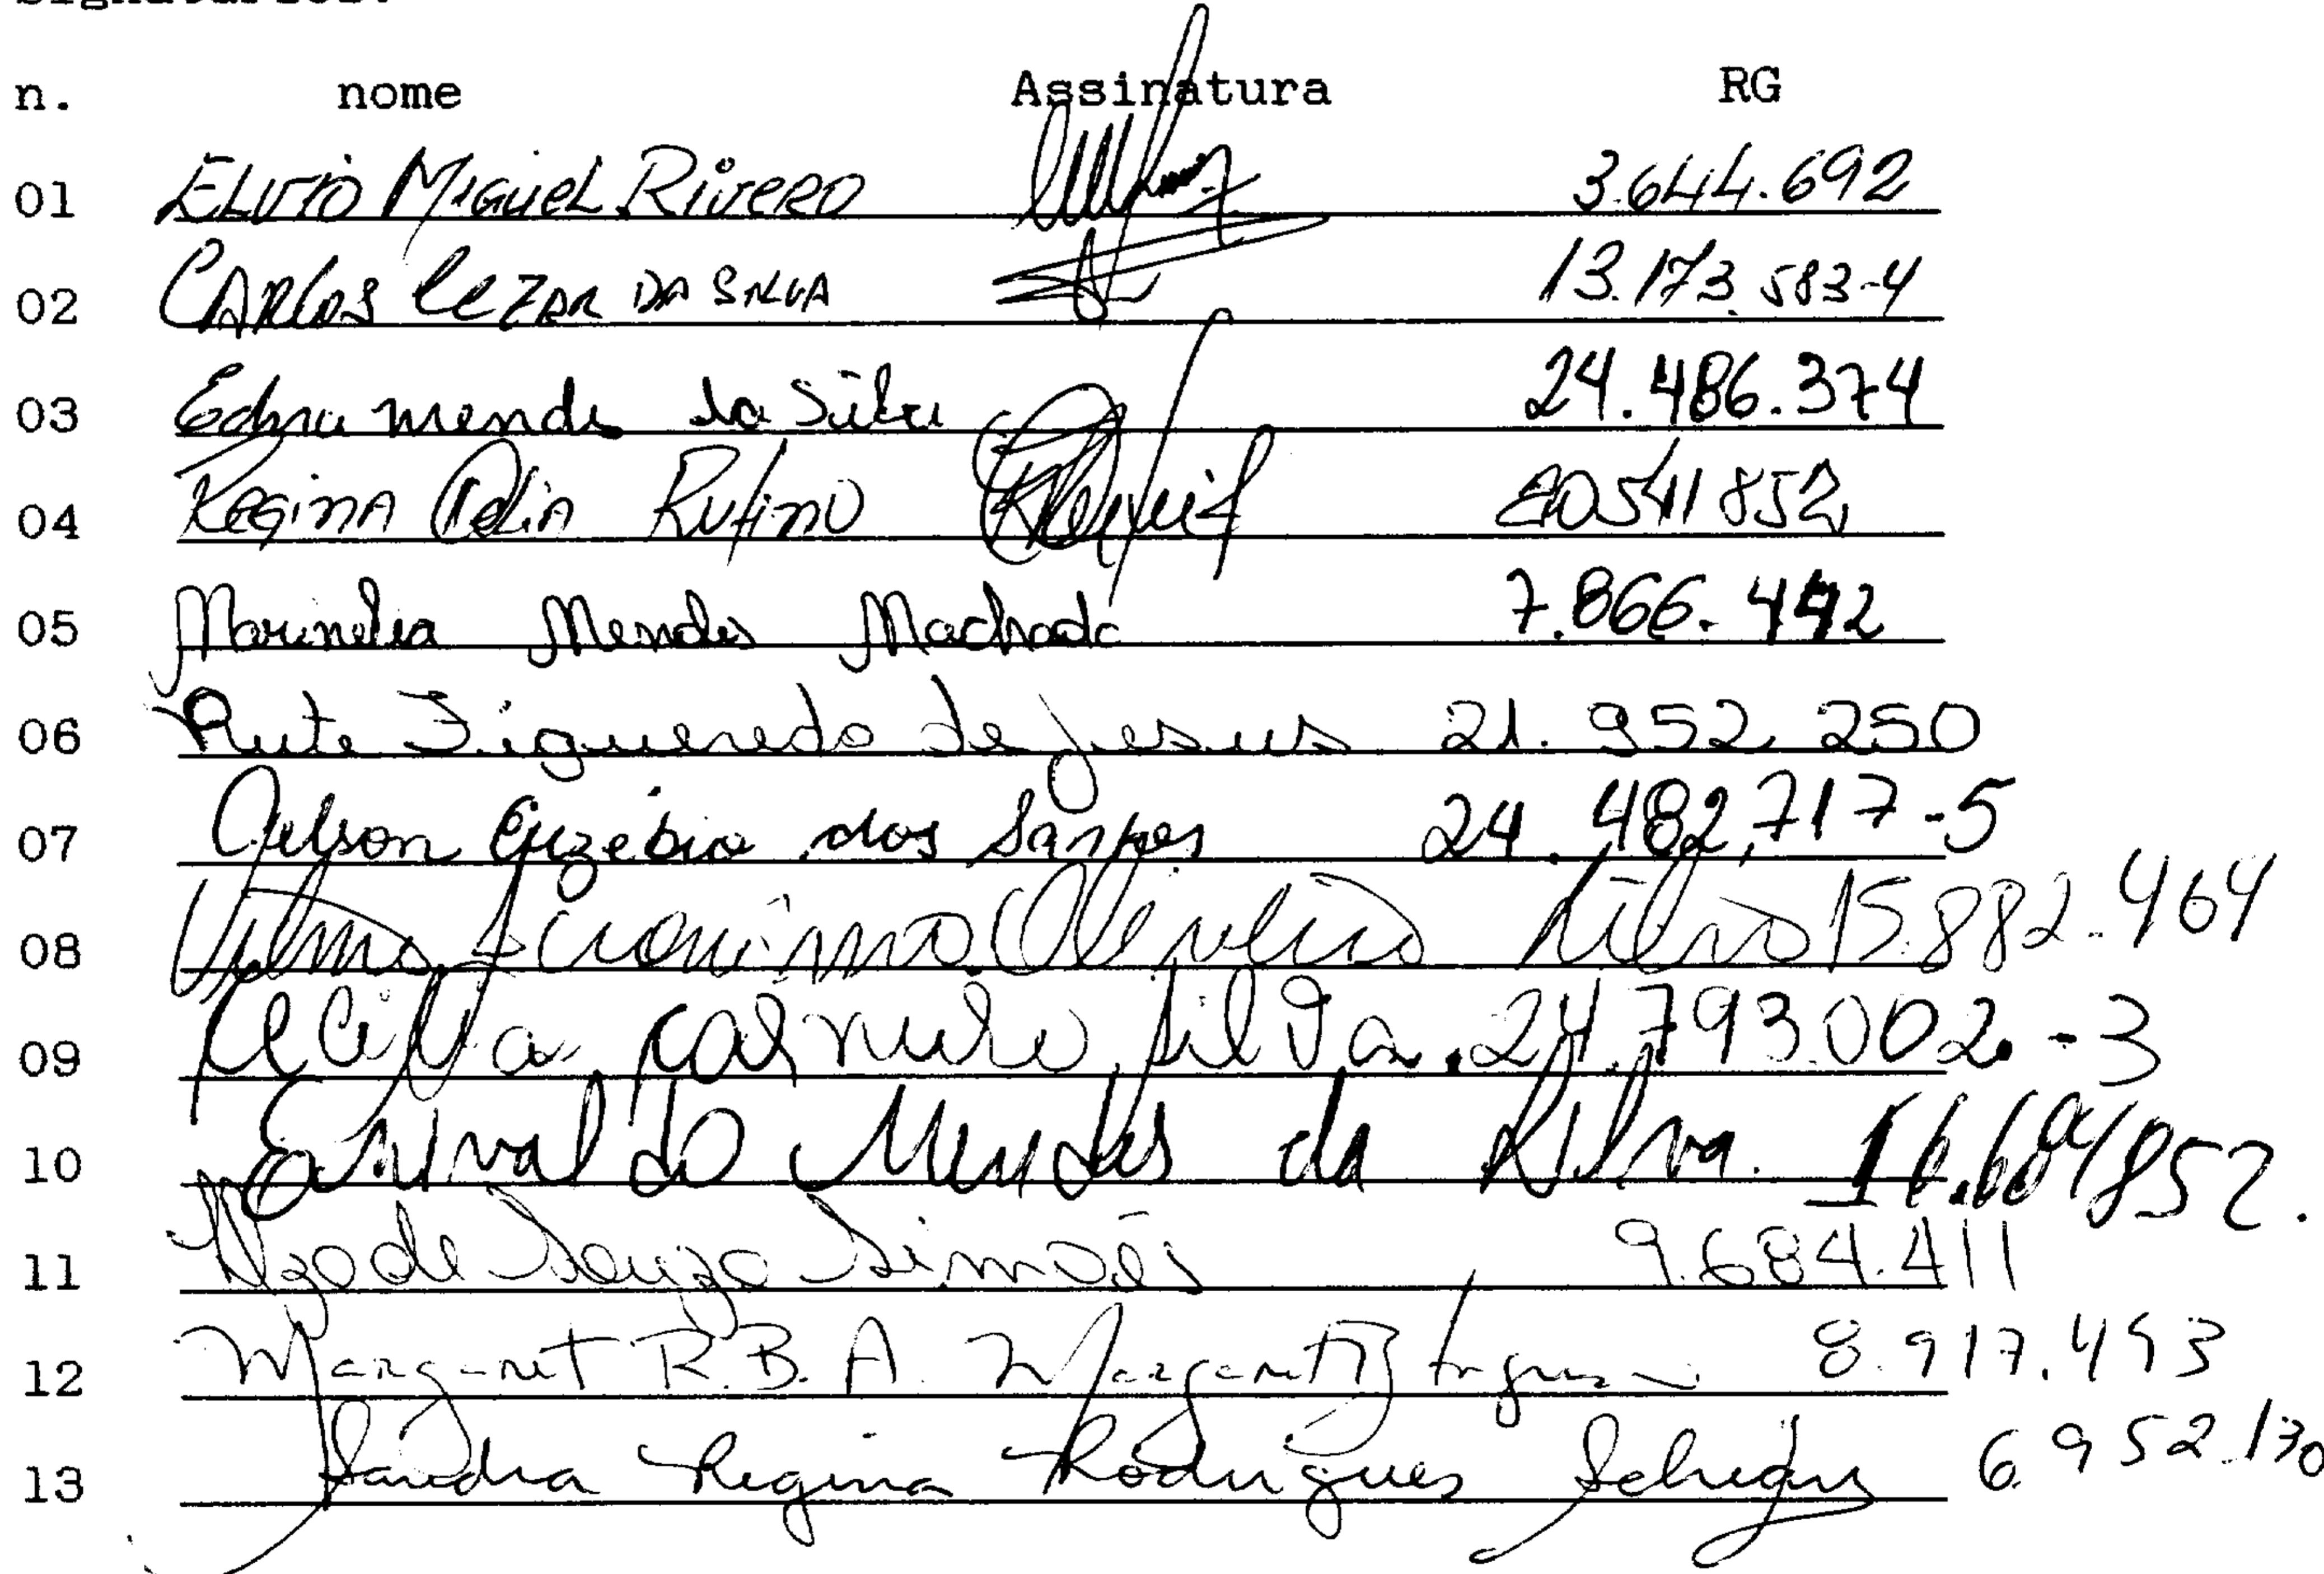 n. nome Assinatura RG
01 ELVIO MIGUEL RIVERO 3.644.692
02 CARLOS CEZAR DA SILVA 13.173.583-4
03 Edna mendes da Silva 24.486.374
04 REGINA Célia Rufino 20541852
05 Marinelia Mendes Machado 7.866.442
06 Rute Figueredo de Jesus 21.952.250
07 Gelson Euzébio dos Santos 24.482,717-5
08 Vilma Jeronimo Oliveira Silva 15.882.464
09 carneiro silva. 24.793.002.-3
10 Mendes da Silva. 16.604852.
11 de Souza Simões 9.684.411
12 Margaret R.B.A. Margaret 8.917.493
13 Sandra Regina Rodrigues 6.952.130